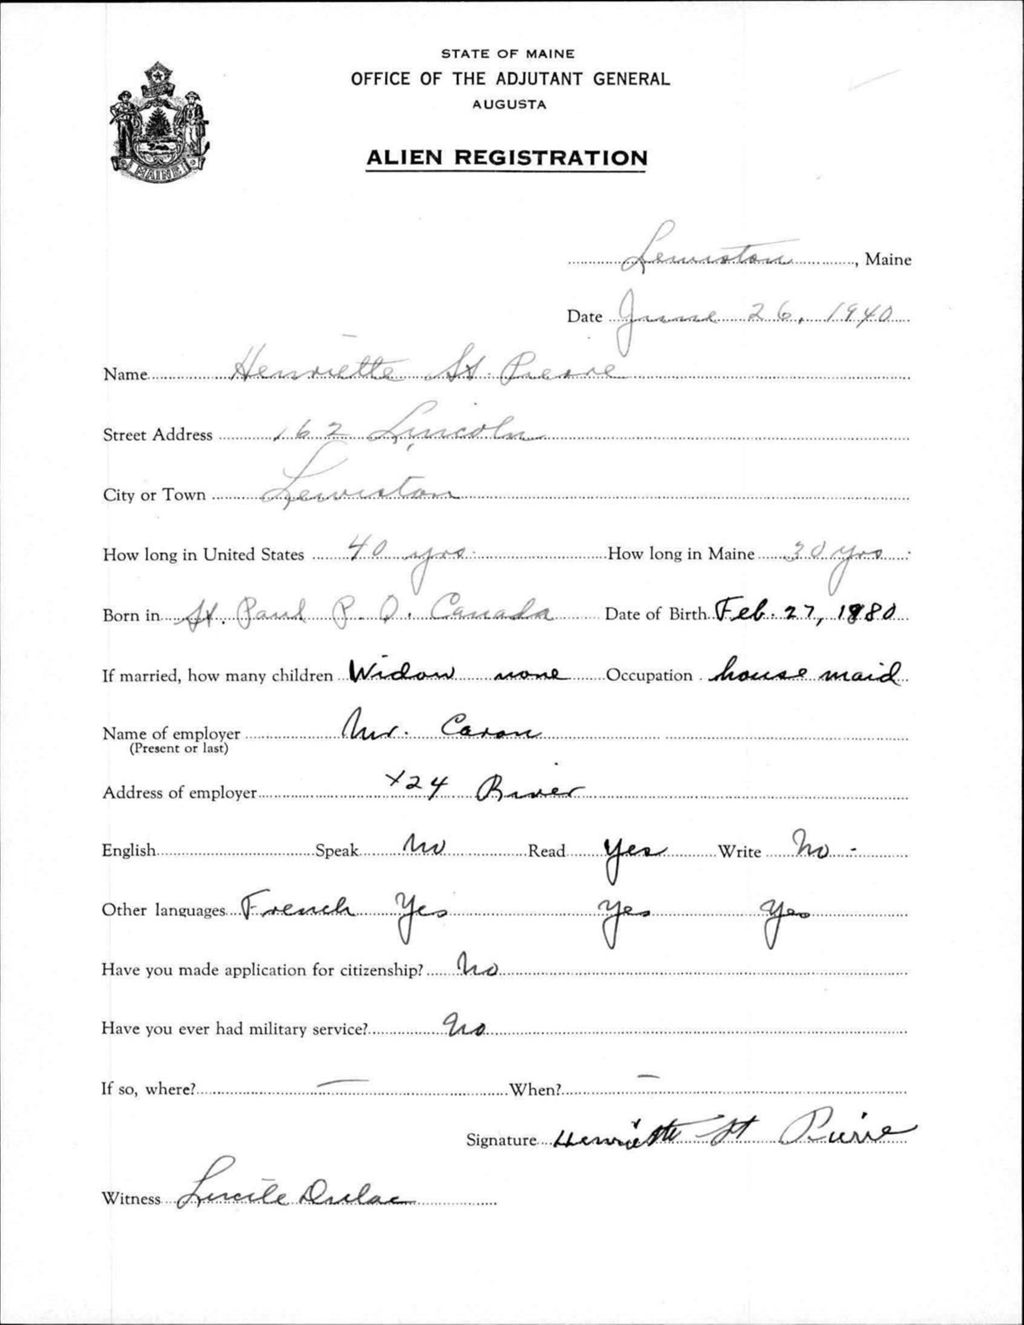 STATE OF MAINE
OFFICE OF THE ADJUTANT GENERAL
AUGUSTA
ALIEN REGISTRATION
MAINE
Lewiston, Maine
Date June 26, 1940
Name Henriette St Pierre
Street Address 162 Lincoln
City or Town Lewiston
How long in United States 40 yrs. How long in Maine 30 yrs
Born in St. Paul P. Q. Canada Date of Birth Feb. 27, 1880
If married, how many children Widow none Occupation house maid
Name of employer Mr. Caron
(Present or last)
Address of employer 24 River
English Speak No Read Yes Write No -
Other languages French Yes Yes Yes
Have you made application for citizenship? No
Have you ever had military service? No
If so, where? — When? —
Signature Henriette St Pierre
Witness Lucile Dulac